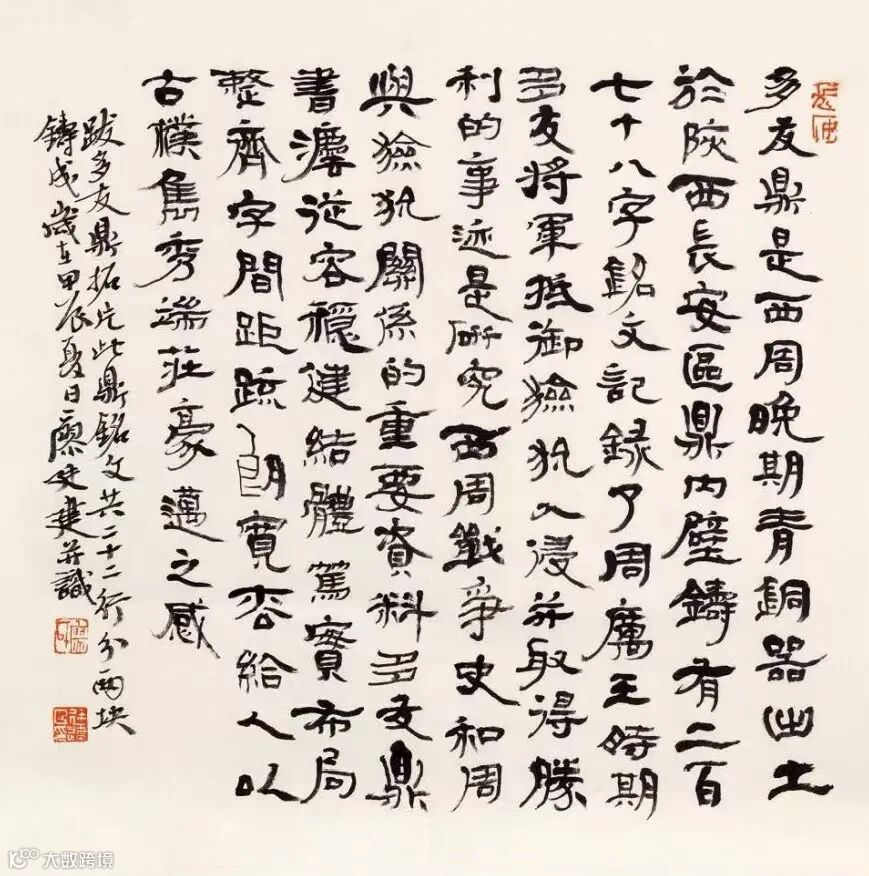 多友鼎是西周晚期青銅器出土
於陝西長安區鼎内壁鑄有二百
七十八字銘文記録了周厲王時期
多友將軍抵御獫狁入浸并取得勝
利的事迹是研究西周戰爭史和周
與獫狁關係的重要資料多友鼎
書灋從容穩健結體篤實布局
整齊字間距疏朗寬容給人以
古樸雋秀端莊豪邁之感
跋多友鼎拓片此鼎銘文共二十二行分兩塊
鑄成歲在甲辰夏日廖建并識
大数跨境